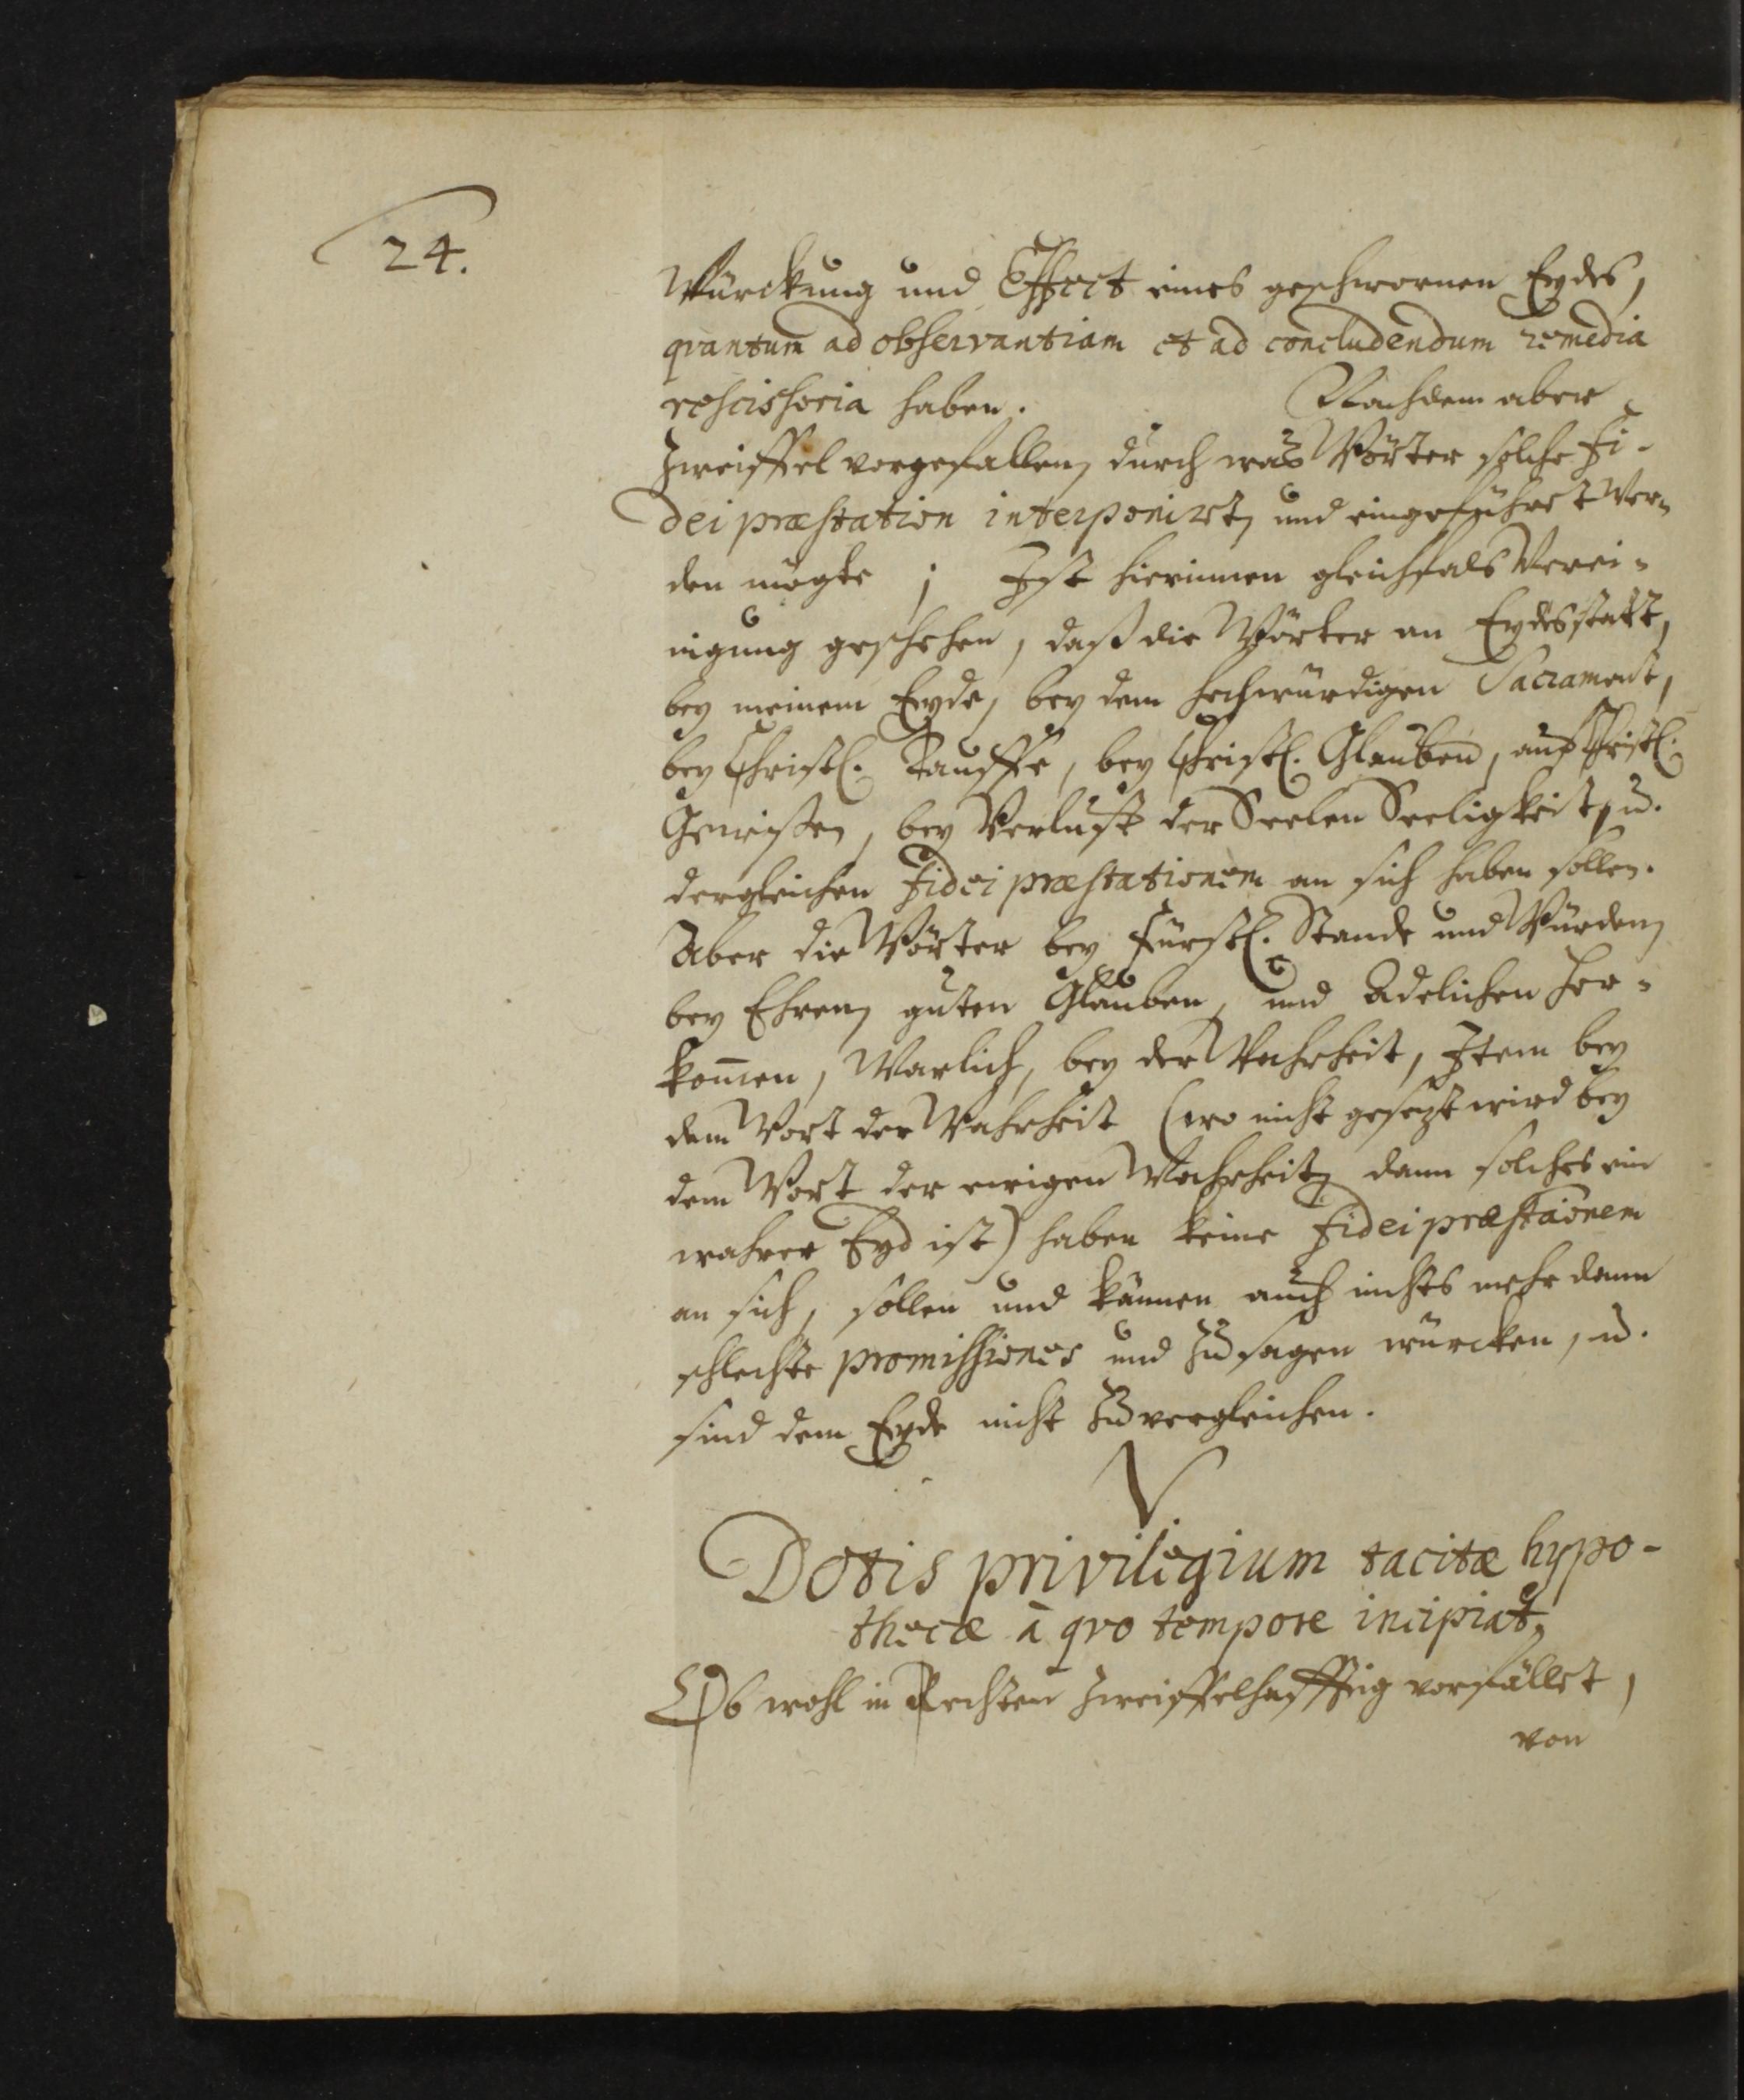 24.
Würckung und Effect eines geschwornen Eydes,
qvantum ad observantiam et ad concludendum remedia
rescissoria haben. Nachdem aber
Zweiffel vorgefallen, durch was Wörter solche Fi-
dei præstation interponiret, und eingeführet wer-
den mögte; Ist hierinnen gleichfals Verei-
nigung geschehen, daß die Wörter an Eydesstatt,
bey meinem Eyde, bey dem hochwürdigen Sacrament,
bey Christl. Tauffe, bey Christl. Glauben, auf Christl.
Gewissen, bey Verlust der Seelen Seeligkeit, u.
dergleichen Fidei præstationem an sich haben sollen.
Aber die Wörter bey Fürstl. Stande und Würden,
bey Ehren, guten Glauben, und Adelichen Her-
kom̄en, Warlich, bey der Wahrheit, Item bey
dem Wort der Wahrheit (wo nicht gesezt wird bey
dem Wort der ewigen Wahrheit, dann solches ein
wahrer Eyd ist) haben keine Fidei præstaōnem
an sich, sollen und können auch nichts mehr dann
schlechte promissiones und Zusagen würcken, u.
sind dem Eyde nicht zu vergleichen.
V
Dotis privilegium tacitæ hypo-
thecæ à qvo tempore incipiat,
Ob wohl in Rechten zweiffelhafftig vorfället,
von